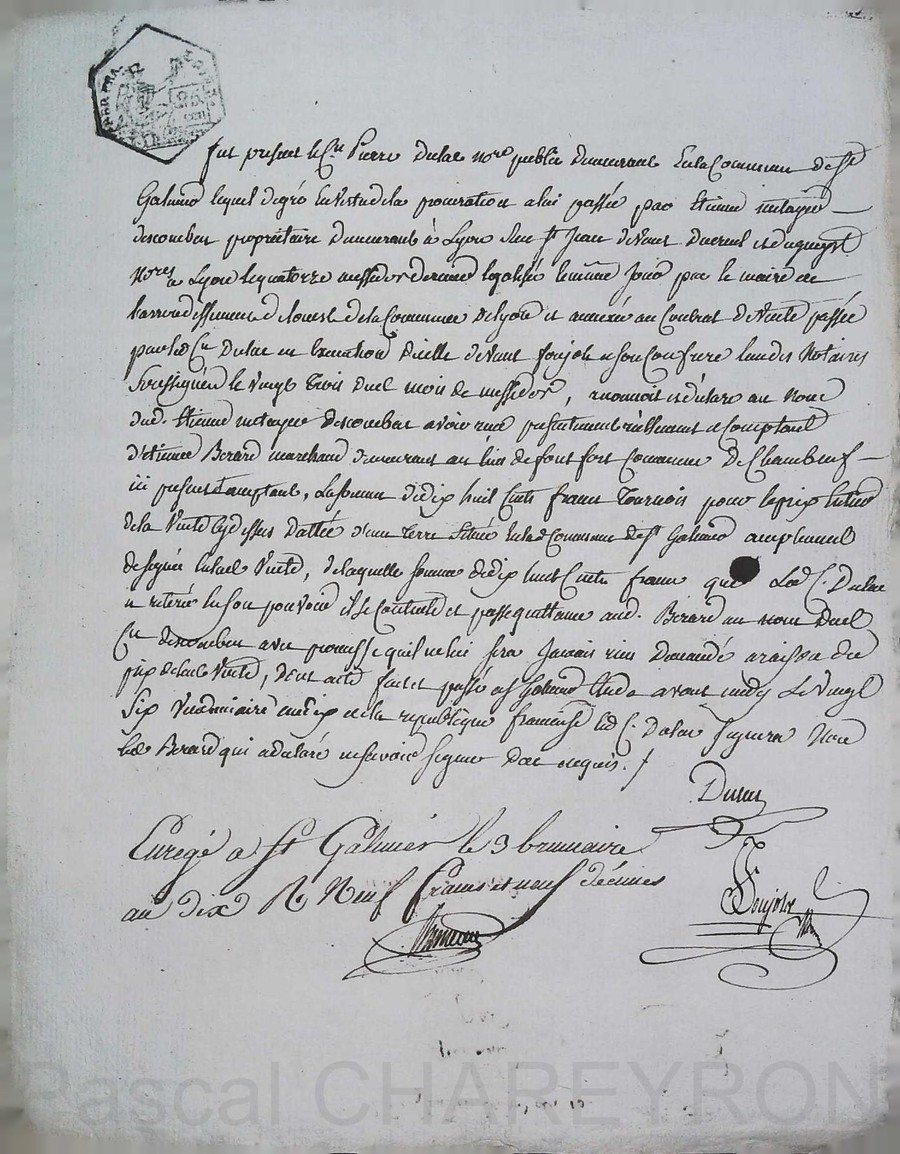 REP. FRA.
fut present le C.en Pierre Dulac no.re public demeurant en la Commune de St
Galmier lequel de gré en vertu de la procuration a lui passée par Etienne metayer
descombes propriétaire demeurant à Lyon rue St Jean devant et
No.res a Lyon le quatorze messidor dernier legalisée le même jour par le maire de
l'arrondissement de l'ouest de la Commune de Lyon et annexée au Contrat de Vente passée
par led C.en Dulac en execution d'icelle devant foujols & son Confrere Notaires
soussignés le vingt trois dud mois de messidor, reconnoit et déclare au nom
dud. Etienne metayer descombes avoir reçu presentement réellement & Comptant
d'Etienne Berard marchand demeurant au lieu de font fort Commune de Chambeuf
ici present Comptant, la somme de dix huit Cents francs Tournois pour le prix entier
de la Vente cy dessus dattée d'une Terre située en lad Commune de St Galmier amplement
designée en lad Vente, de laquelle somme de dix huit Cents francs que Led C. Dulac
a retirée en son pouvoir il se Contente et passe quittance aud. Berard au nom dud
C.en descombes avec promesse qu'il ne lui sera jamais rien Demandé a raison du
prix de lad Vente, dont acte fait et passé a St Galmier Etude avant midy Le Vingt
Six Vendémiaire an dix de la république française led C. Dulac signera non
led Berard qui a déclaré ne savoir signer de ce requis.
Dulac
Enregé a St Galmier le 3 brumaire
an dix R Neuf francs et neuf décimes
Foujols
Pascal CHAREYRON